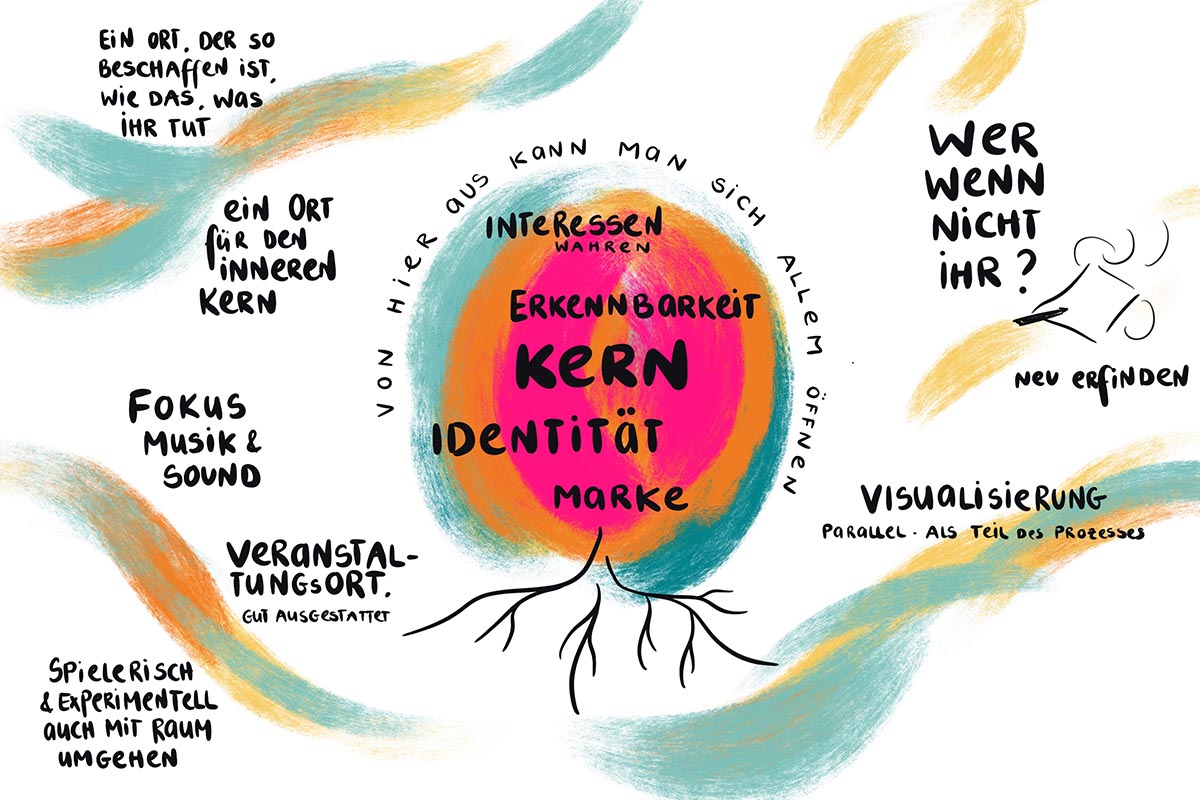 EIN ORT, DER SO
BESCHAFFEN IST,
WIE DAS, WAS
IHR TUT
EIN ORT
FÜR DEN
INNEREN
KERN
FOKUS
MUSIK &
SOUND
VERANSTAL-
TUNGSORT.
GUT AUSGESTATTET
SPIELERISCH
& EXPERIMENTELL
AUCH MIT RAUM
UMGEHEN
VON HIER AUS KANN MAN SICH ALLEM ÖFFNEN
INTERESSEN
WAHREN
ERKENNBARKEIT
KERN
IDENTITÄT
MARKE
WER
WENN
NICHT
IHR?
NEU ERFINDEN
VISUALISIERUNG
PARALLEL. ALS TEIL DES PROZESSES